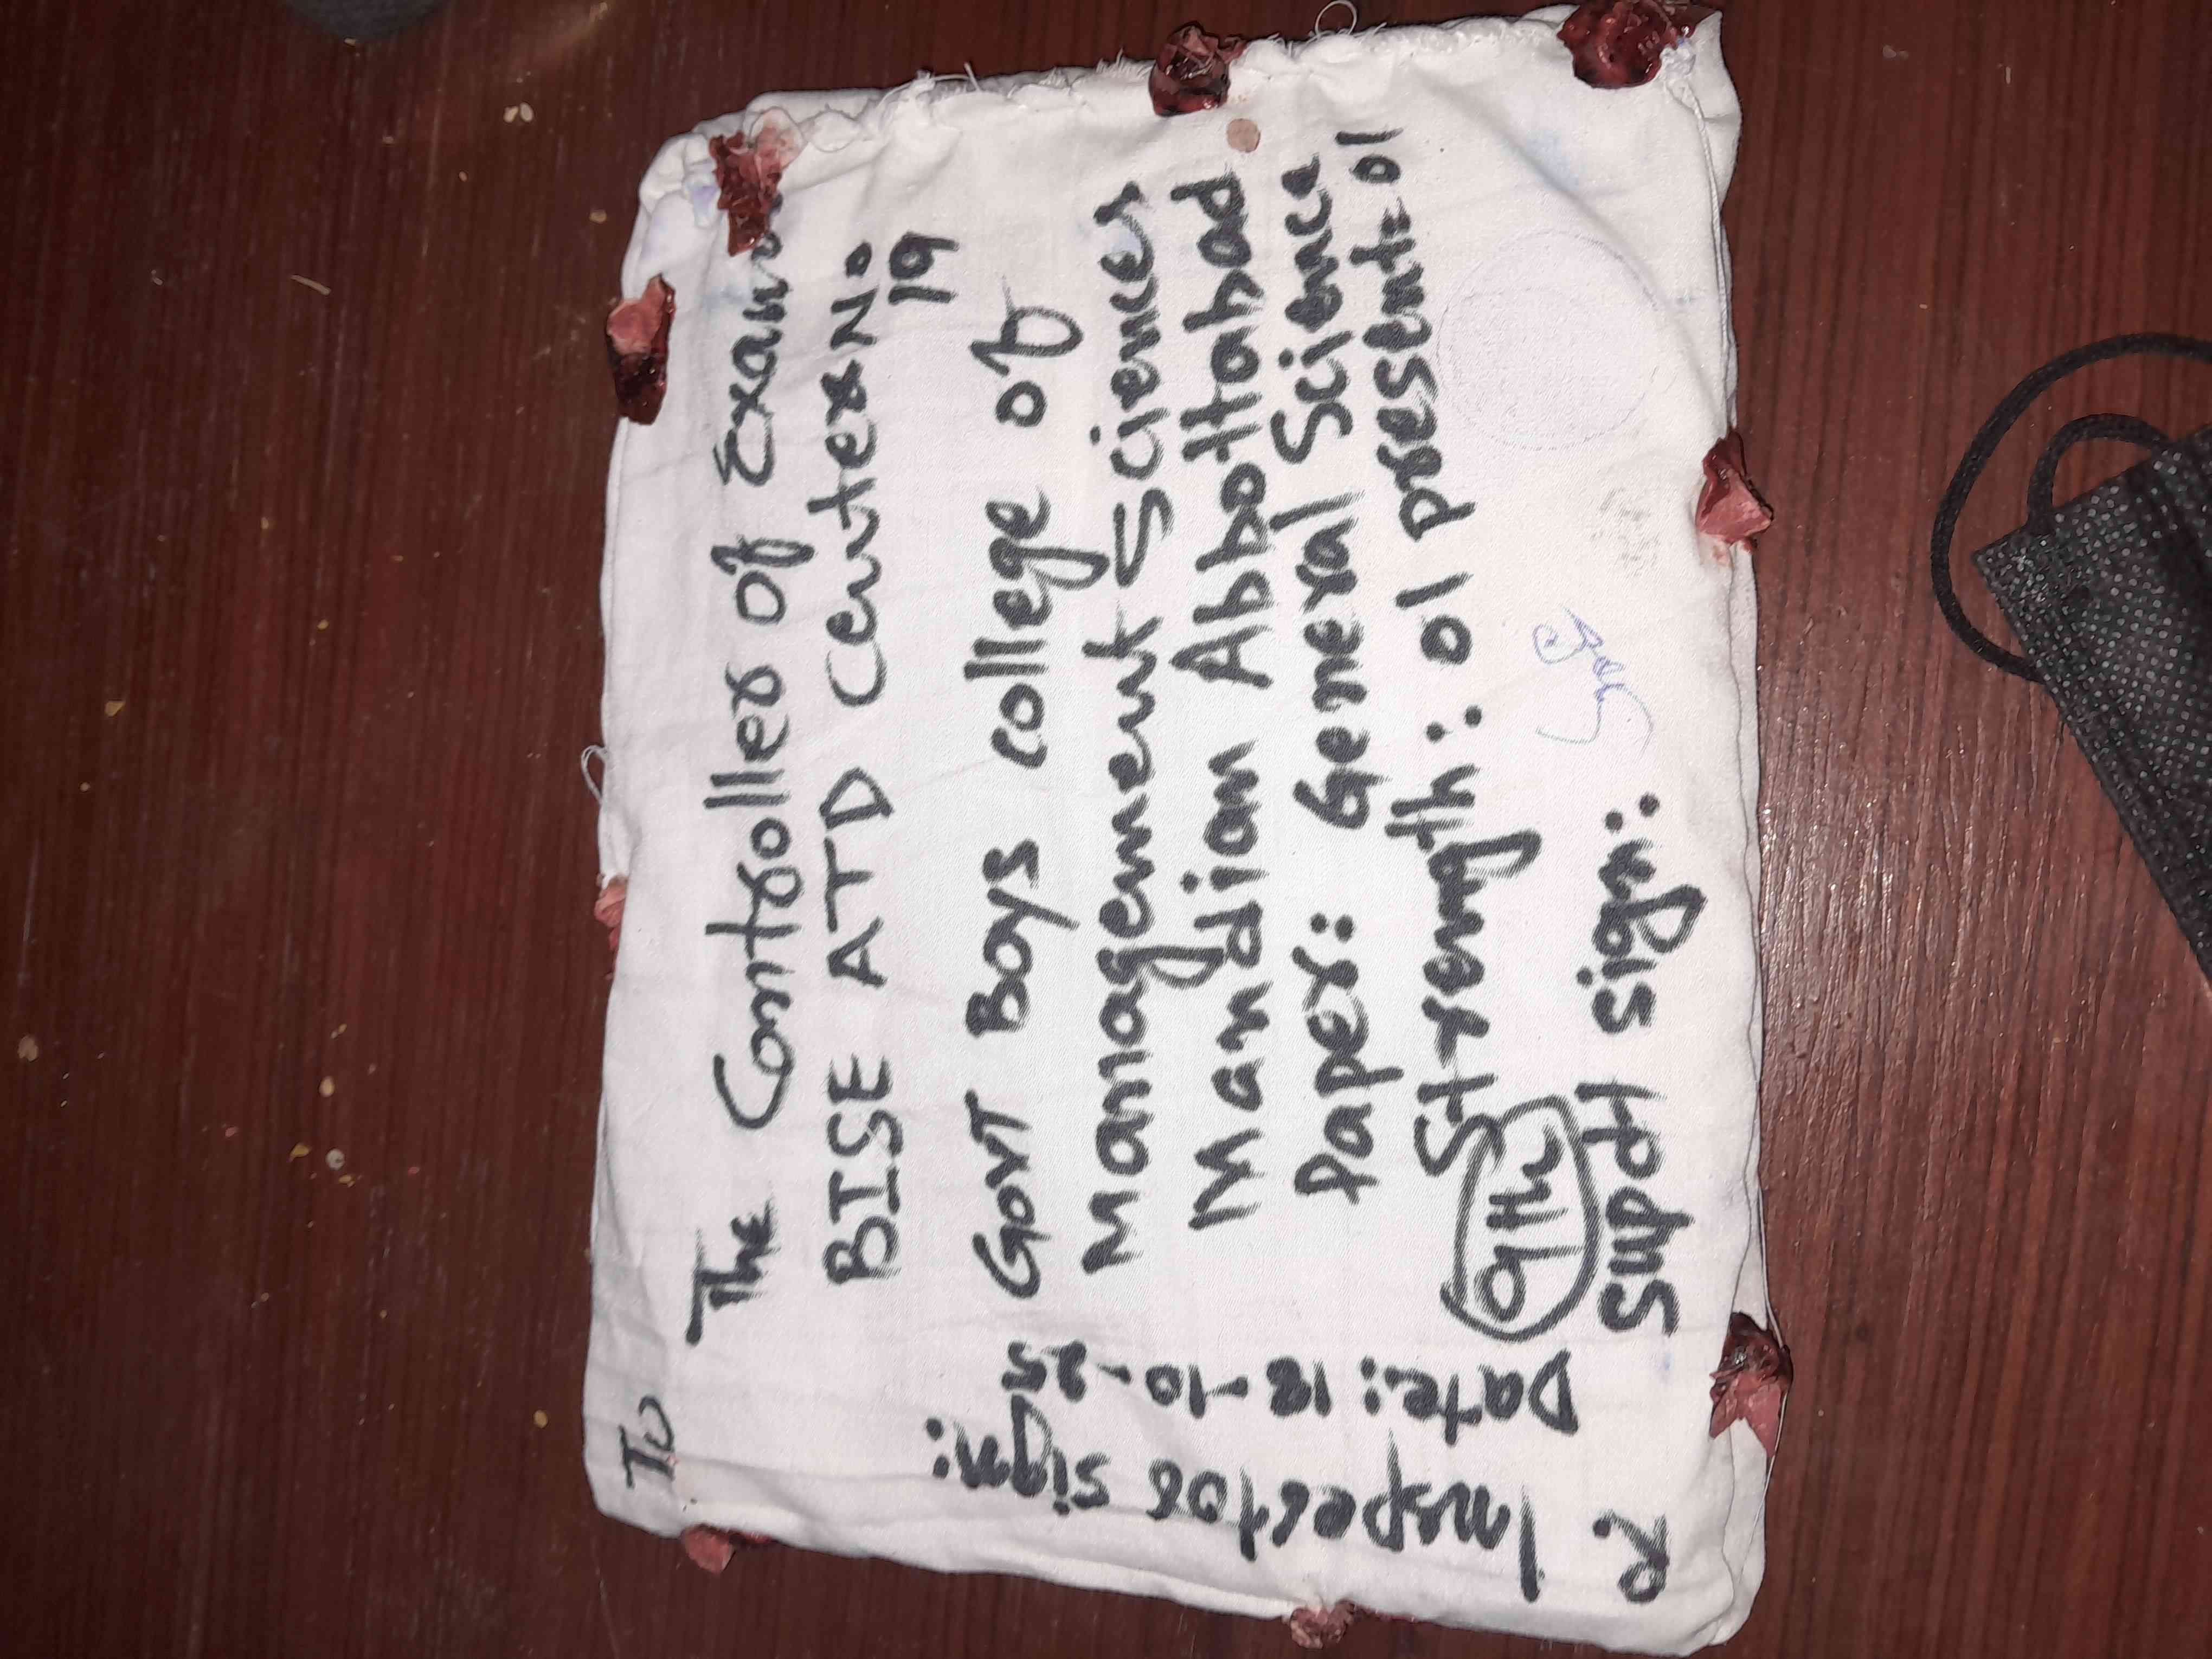 To
The Controller of Exam:
BISE ATD Center No
19
Govt Boys college of
Management Sciences
Mandian Abbottabad
Paper: General Science
Strength: 01 Present= 01
9th
Supdt sign:
R.
Inspector sign:
Date: 18-10-25